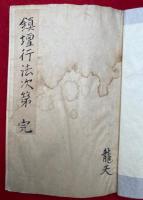 鎮壇行法次第 完
龍天